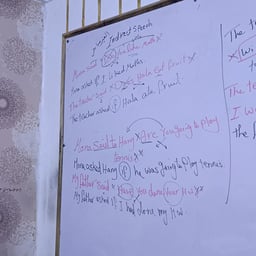 Indirect Speech
Mona said "Do you like maths"
Mona asked if I liked Maths.
The teacher said "Does Hala eat fruit"
The teacher asked if Hala ate fruit.
Mona Said to Hany "Are You going to Play
tennis
Mona asked Hany if he was going to Play tennis.
My father said "Have you done your H.w
My father asked if I had done my H.w.
The t
The te
I w
the f